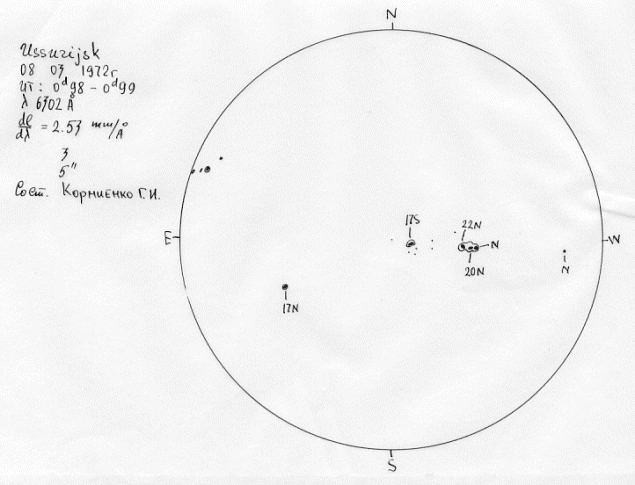 N
Ussurijsk
08 03 1972г
UT: 0ᵈ98 - 0ᵈ99
λ 6302 Å
dl/dλ = 2.53 mm/Å
3
5"
Сост. Корниенко Г.И.
E
W
17S
22N
N
20N
N
17N
S